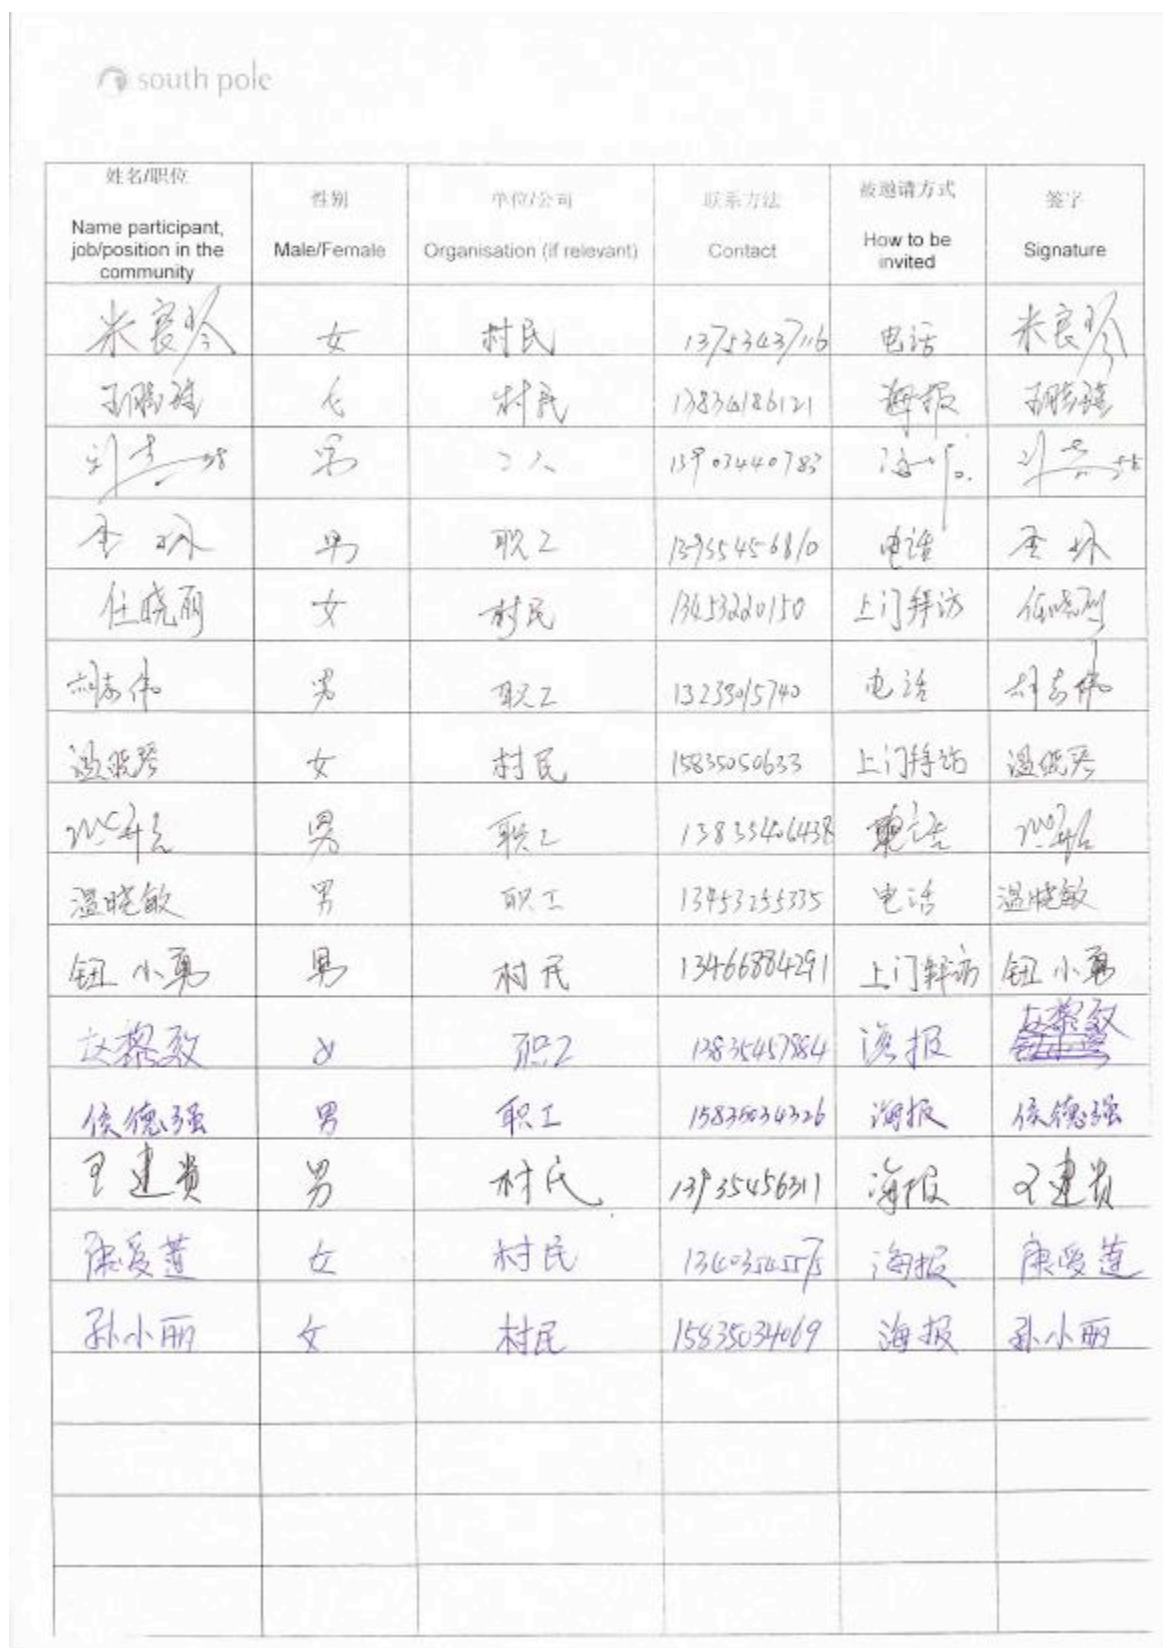 south pole
姓名/职位 性别 单位/公司 联系方法 被邀请方式 签字
Name participant, job/position in the community Male/Female Organisation (if relevant) Contact How to be invited Signature
米良琴 女 村民 13753437116 电话 米良琴
女 村民 13834186121 海报
男 工人 13903440783 海报
男 职工 13935456810 电话
任晓丽 女 村民 13453220150 上门拜访 任晓丽
男 职工 13233015740 电话
温晓琴 女 村民 15835050633 上门拜访 温晓琴
男 职工 13835406438 电话
温晓敏 男 职工 13453255335 电话 温晓敏
钮小勇 男 村民 13466884291 上门拜访 钮小勇
赵黎致 职工 13835457884 海报 赵黎致
侯德强 男 职工 15835034326 海报 侯德强
王建贵 男 村民 13935456311 海报 王建贵
康爱莲 女 村民 海报 康爱莲
孙小丽 女 村民 15835034069 海报 孙小丽